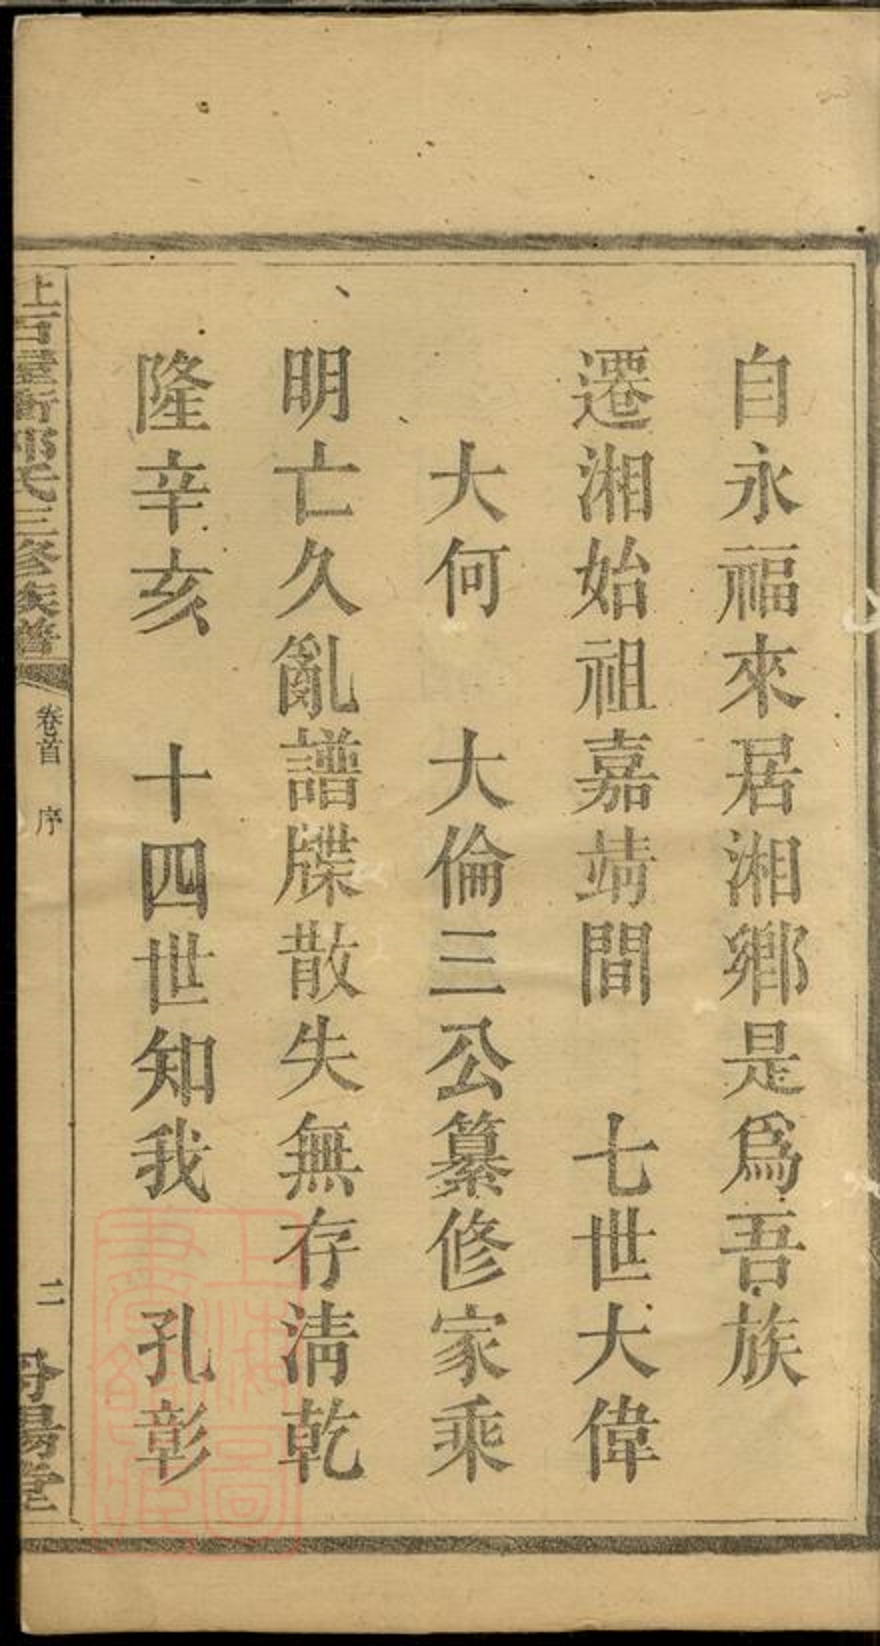 自永福來居湘鄉是爲吾族
遷湘始祖嘉靖間 七世大偉
大何 大倫三公纂修家乘
明亡久亂譜牒散失無存淸乾
隆辛亥 十四世知我 孔彰
氏三修族譜
卷首 序
二
上海圖書館藏